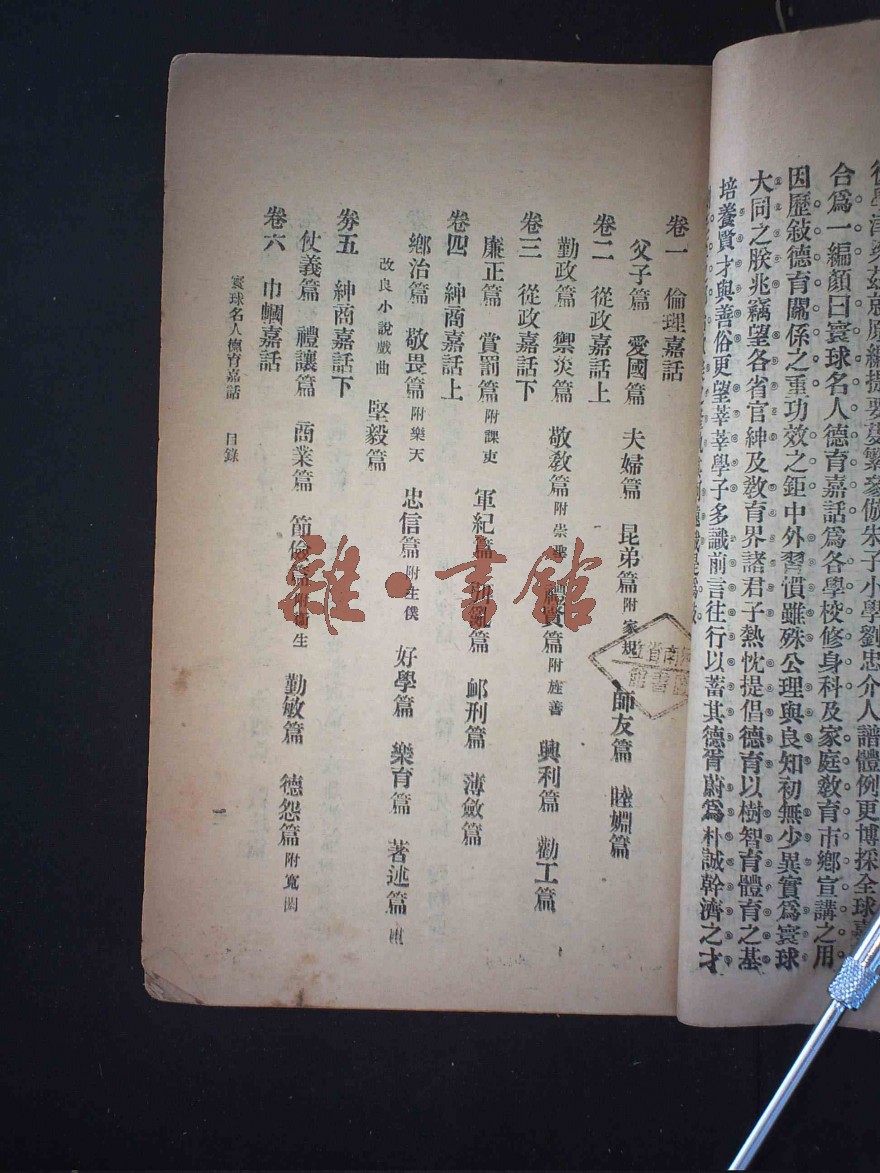 合爲一編顏曰寰球名人德育嘉話爲各學校修身科及家庭教育市鄉宣講之用
因歷敍德育關係之重功效之鉅中外習慣雖殊公理與良知初無少異實爲寰球
大同之朕兆竊望各省官紳及敎育界諸君子熱忱提倡德育以樹智育體育之基
培養賢才與善俗更望莘莘學子多識前言往行以蓄其德胥蔚爲朴誠幹濟之才
卷一 倫理嘉話
父子篇 愛國篇 夫婦篇 昆弟篇附家規 師友篇 睦婣篇
卷二 從政嘉話上
勤政篇 禦災篇 敬敎篇附崇 禮賢篇附旌善 興利篇 勸工篇
卷三 從政嘉話下
廉正篇 賞罰篇附課吏 軍紀篇 篇 邮刑篇 薄斂篇
卷四 紳商嘉話上
鄉治篇 敬畏篇附樂天 忠信篇附主僕 好學篇 樂育篇 著述篇附
改良小說戲曲 堅毅篇
劵五 紳商嘉話下
仗義篇 禮讓篇 商業篇 節儉篇附衛生 勤敏篇 德怨篇附寬閎
卷六 巾幗嘉話
寰球名人德育嘉話 目錄
雜·書館